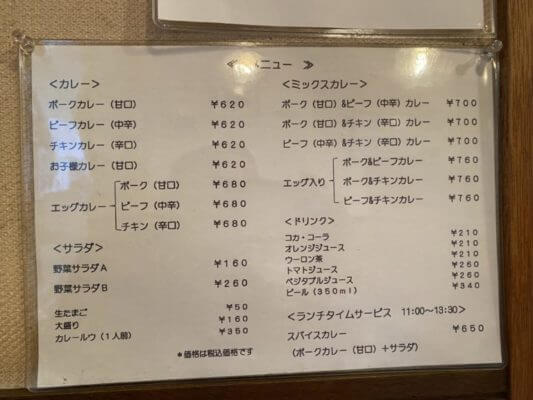 ≪ メニュー ≫
＜カレー＞
ポークカレー（甘口） ￥620
ビーフカレー（中辛） ￥620
チキンカレー（辛口） ￥620
お子様カレー（甘口） ￥620
エッグカレー
ポーク（甘口） ￥680
ビーフ（中辛） ￥680
チキン（辛口） ￥680
＜サラダ＞
野菜サラダA ￥160
野菜サラダB ￥260
生たまご ￥50
大盛り ￥160
カレールウ（1人前） ￥350
＊価格は税込価格です
＜ミックスカレー＞
ポーク（甘口）&ビーフ（中辛）カレー ￥700
ポーク（甘口）&チキン（辛口）カレー ￥700
ビーフ（中辛）&チキン（辛口）カレー ￥700
エッグ入り
ポーク&ビーフカレー ￥760
ポーク&チキンカレー ￥760
ビーフ&チキンカレー ￥760
＜ドリンク＞
コカ・コーラ ￥210
オレンジジュース ￥210
ウーロン茶 ￥210
トマトジュース ￥260
ベジタブルジュース ￥260
ビール（350ml） ￥340
＜ランチタイムサービス 11:00～13:30＞
スパイスカレー ￥650
（ポークカレー（甘口）＋サラダ）